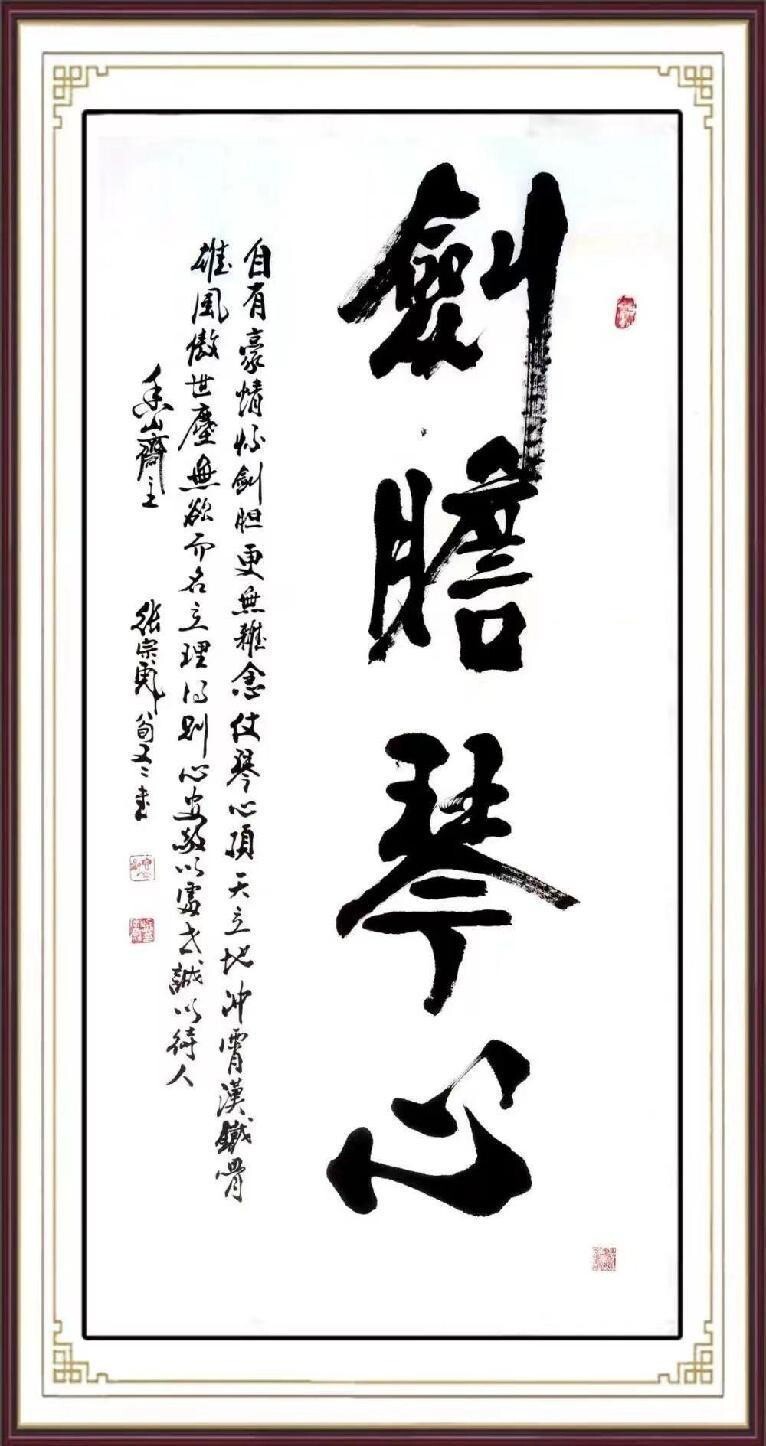 劍膽琴心
自有豪情怀劍胆更無雜念仗琴心頂天立地冲霄漢鐵骨
雄風傲世塵無欲而名立理得則心安敬以處世誠以待人
山齋主 張宗彪 書